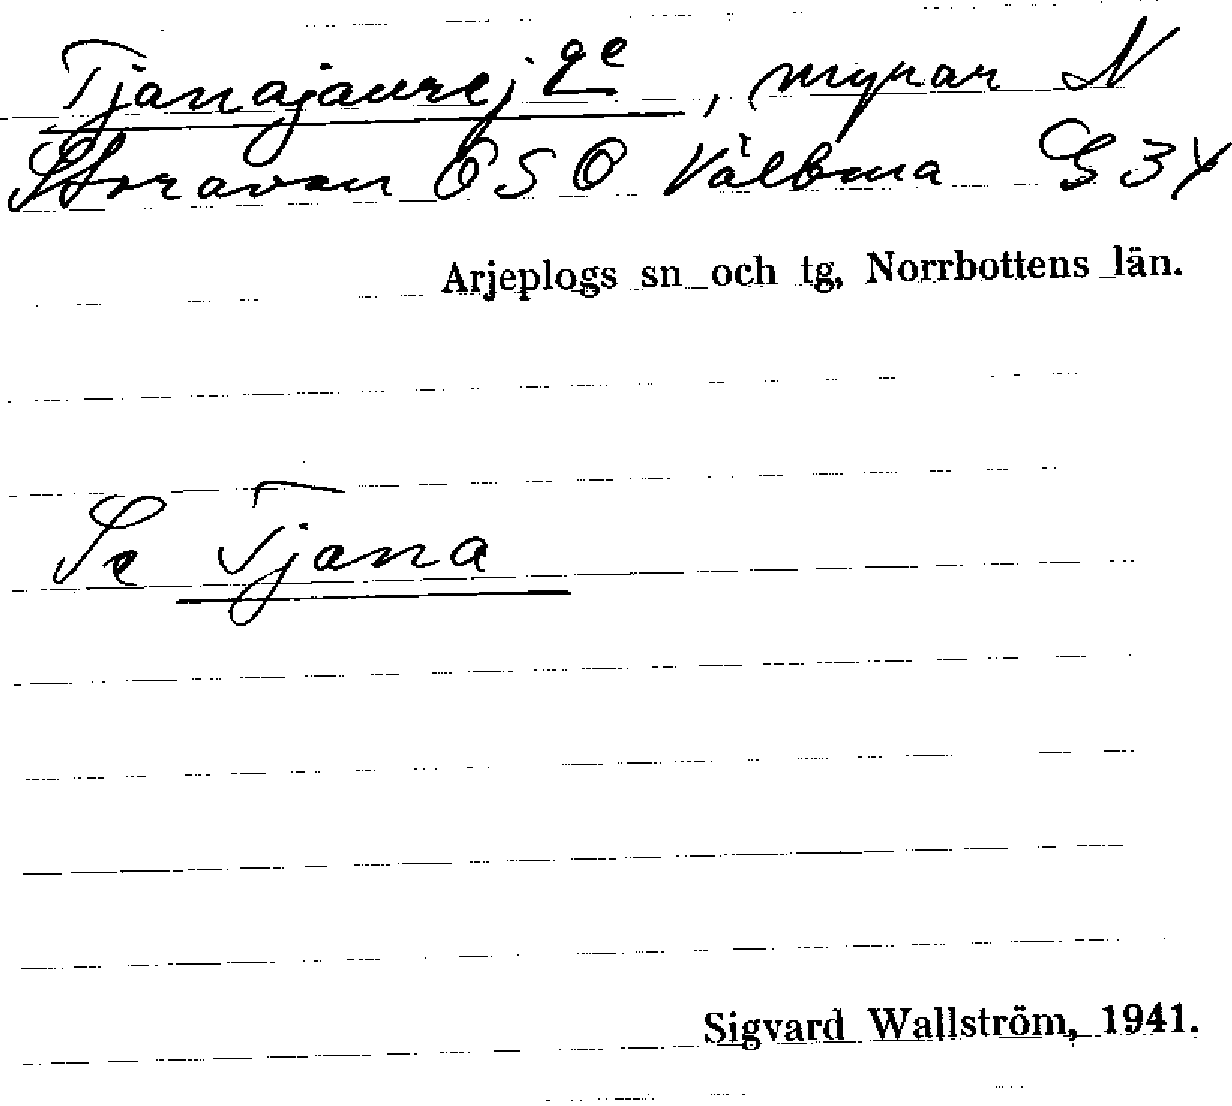 Tjanajaurejge, myrar N
Storavan OSO Välbma G 34
Arjeplogs sn och tg, Norrbottens län.
Se Tjana
Sigvard Wallström, 1941.